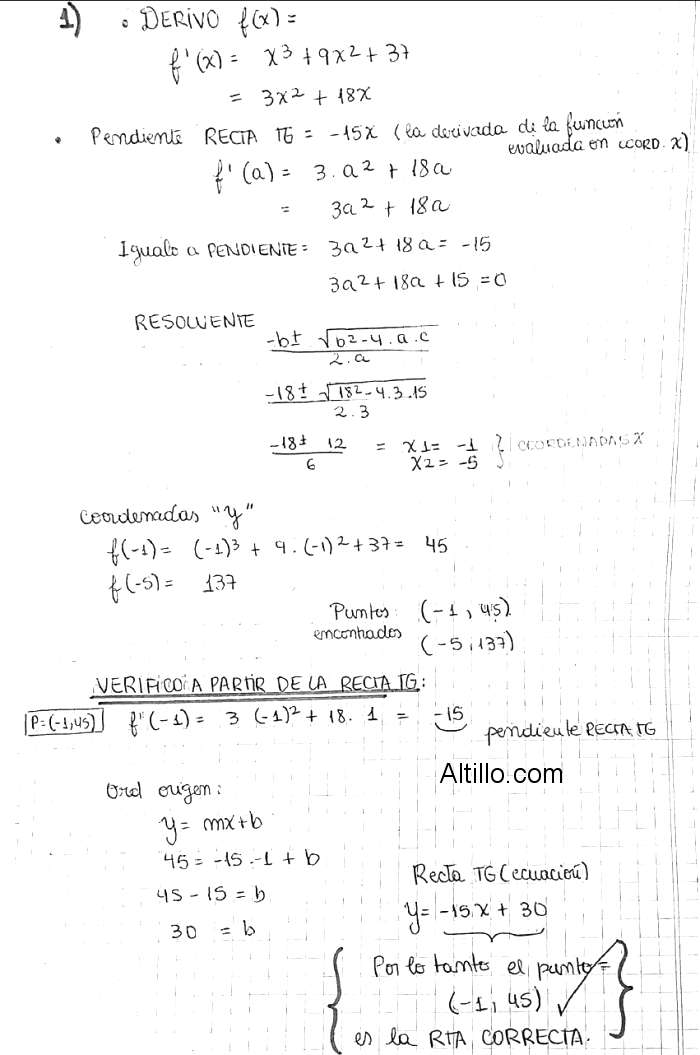 1) • DERIVO f(x) =
f'(x) = x³ + 9x² + 37
= 3x² + 18x
• Pendiente RECTA TG = -15x (la derivada de la función
evaluada en COORD. X)
f'(a) = 3.a² + 18a
= 3a² + 18a
Igualo a PENDIENTE = 3a² + 18a = -15
3a² + 18a + 15 = 0
RESOLVENTE
-b ± √b² - 4.a.c
2.a
-18 ± √18² - 4.3.15
2.3
-18 ± 12 = x1 = -1 } COORDENADAS X
6 x2 = -5
Coordenadas "y"
f(-1) = (-1)³ + 9.(-1)² + 37 = 45
f(-5) = 137
Puntos: (-1, 45)
encontrados (-5, 137)
VERIFICO A PARTIR DE LA RECTA TG:
P=(-1,45) f'(-1) = 3 (-1)² + 18. 1 = -15
pendiente RECTA TG
Altillo.com
Ord origen:
y = mx+b
45 = -15.-1 + b
45 - 15 = b
30 = b
Recta TG (ecuación)
y = -15.x + 30
Por lo tanto el punto =
(-1, 45) ✓
es la RTA CORRECTA.